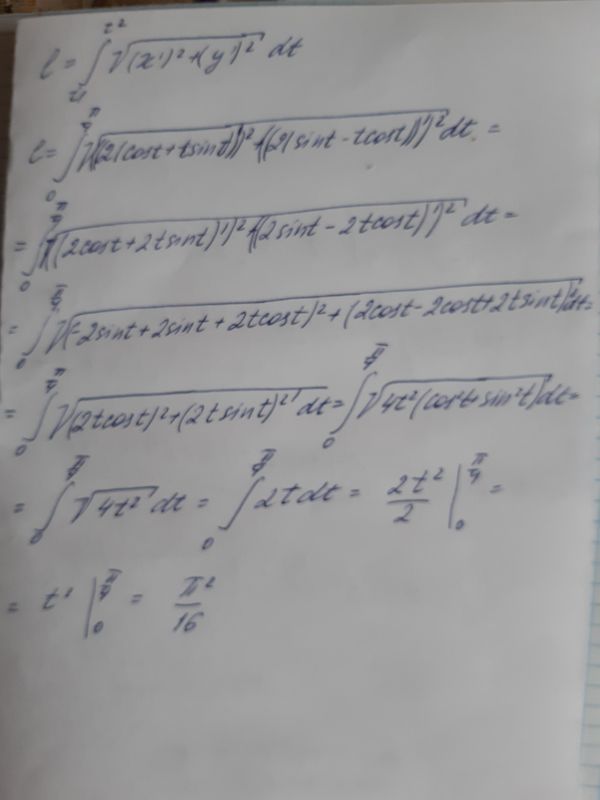 l = ∫_{t1}^{t2} √((x')² + (y')²) dt
l = ∫_0^{π/4} √(((2(cost + tsint))')² + ((2(sint - tcost))')²) dt =
= ∫_0^{π/4} √(((2cost + 2tsint)')² + ((2sint - 2tcost)')²) dt =
= ∫_0^{π/4} √((-2sint + 2sint + 2tcost)² + (2cost - 2cost + 2tsint)²) dt =
= ∫_0^{π/4} √((2tcost)² + (2tsint)²) dt = ∫_0^{π/4} √(4t²(cos²t + sin²t)) dt =
= ∫_0^{π/4} √(4t²) dt = ∫_0^{π/4} 2t dt = 2t²/2 |_0^{π/4} =
= t² |_0^{π/4} = π²/16